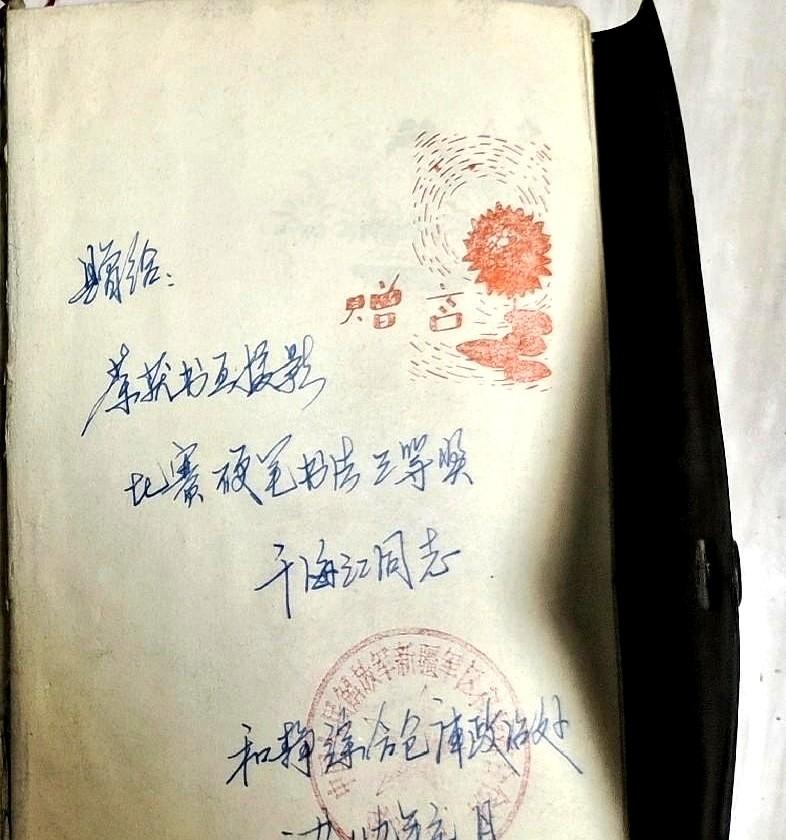 赠言
赠给:
荣获书画摄影
比赛硬笔书法三等奖
于海江同志
解放军新疆军区
和静综合仓库政治处
一九八九年元月